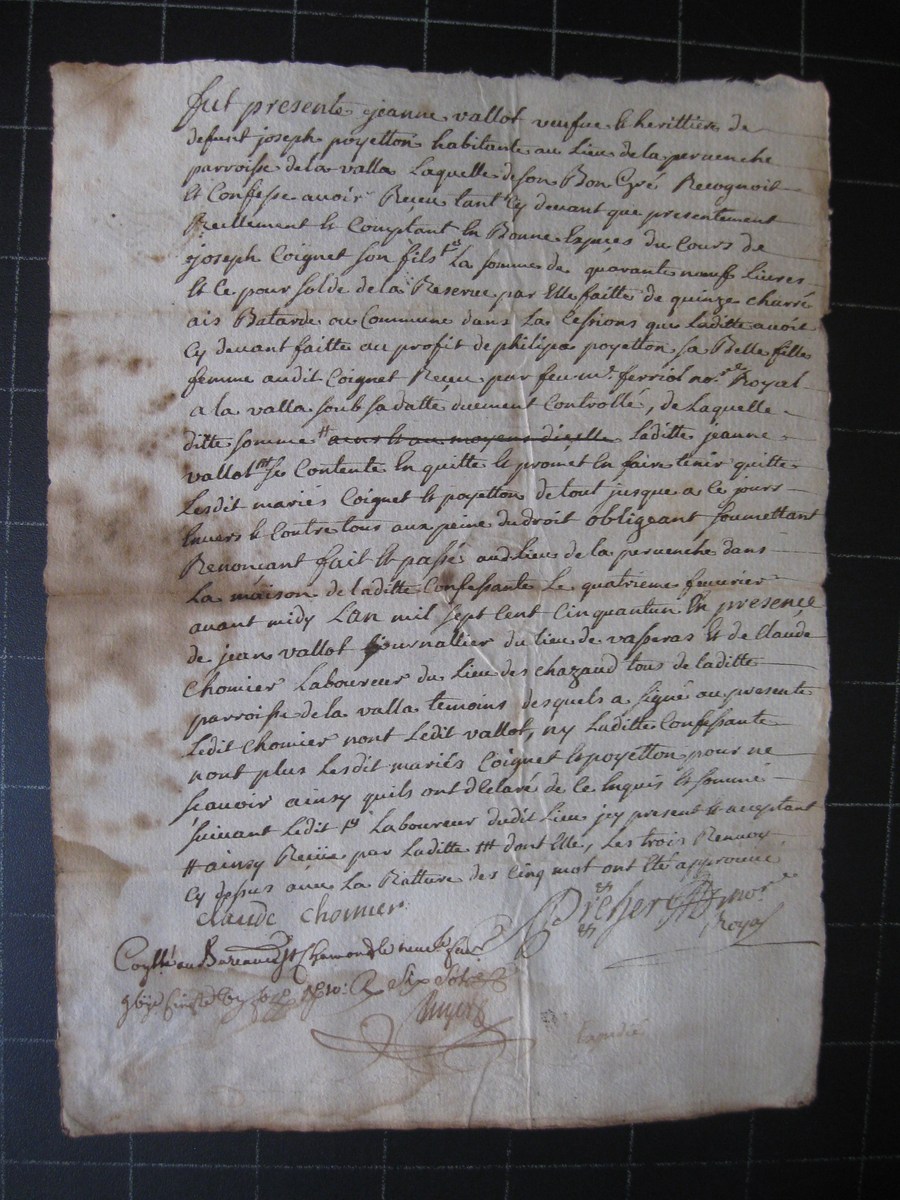 fut presente jeanne vallot veufue & herittiere de
defunt joseph poyetton habitante au Lieu de la peruenche
parroisse de la valla Laquelle de son Bon Gré Recognoit
Et Confesse auoir Receu tant Cy deuant que presentement
Reellement & Comptant En Bonne Espces du Cours de
joseph Coignet son fils La somme de quarante noeuf Liures
Et Ce pour solde de la Reserue par Elle faitte de quinze charré
ais Batarde ou Commune dans La Cessions que Laditte auoit
Cy deuant faitte au profit de philipa poyetton sa Belle fille
femme audit Coignet Receu par feu mr. ferriol nore. Royal
a la valla soub sa datte duement Controllé, de Laquelle
ditte somme # ains & au moyens d'icelle Laditte jeanne
vallot ttt se Contente En quitte & promet En faire tenir quitte
Lesdit mariés Coignet & poyetton de tout jusque a Ce jours
Enuers & Contre tous aux peine du droit obligeant soumettant
Renoncant fait & passé aud. Lieu de la peruenche dans
La maison de laditte Confessante Le quatrieme feuurier
auant midy LAn mil sept Cent Cinquantun En presence
de jean vallot journallier du Lieu de vasseras Et de Claude
Chomier Laboureur du Lieu des chazaud tous de laditte
parroisse de la valla temoins desquels a signé au presente
Ledit Chomier nont Ledit vallot, ny Laditte Confessante
nont plus Lesdit mariés Coignet & poyetton pour ne
scauoir ainsy quils ont dEclaré de Ce Enquis & sommé
suiuant Ledit Laboureur dudit Lieu jcy present & acceptant
# ainsy Reçüe par Laditte ttt dont Elle, Les trois Renuoy
Cy dessus auec La Ratture des Cinq mot ont Eté approuué
claude chomier
nore
Royal
au Bureau de St Chamond le neuf feur
Six sols